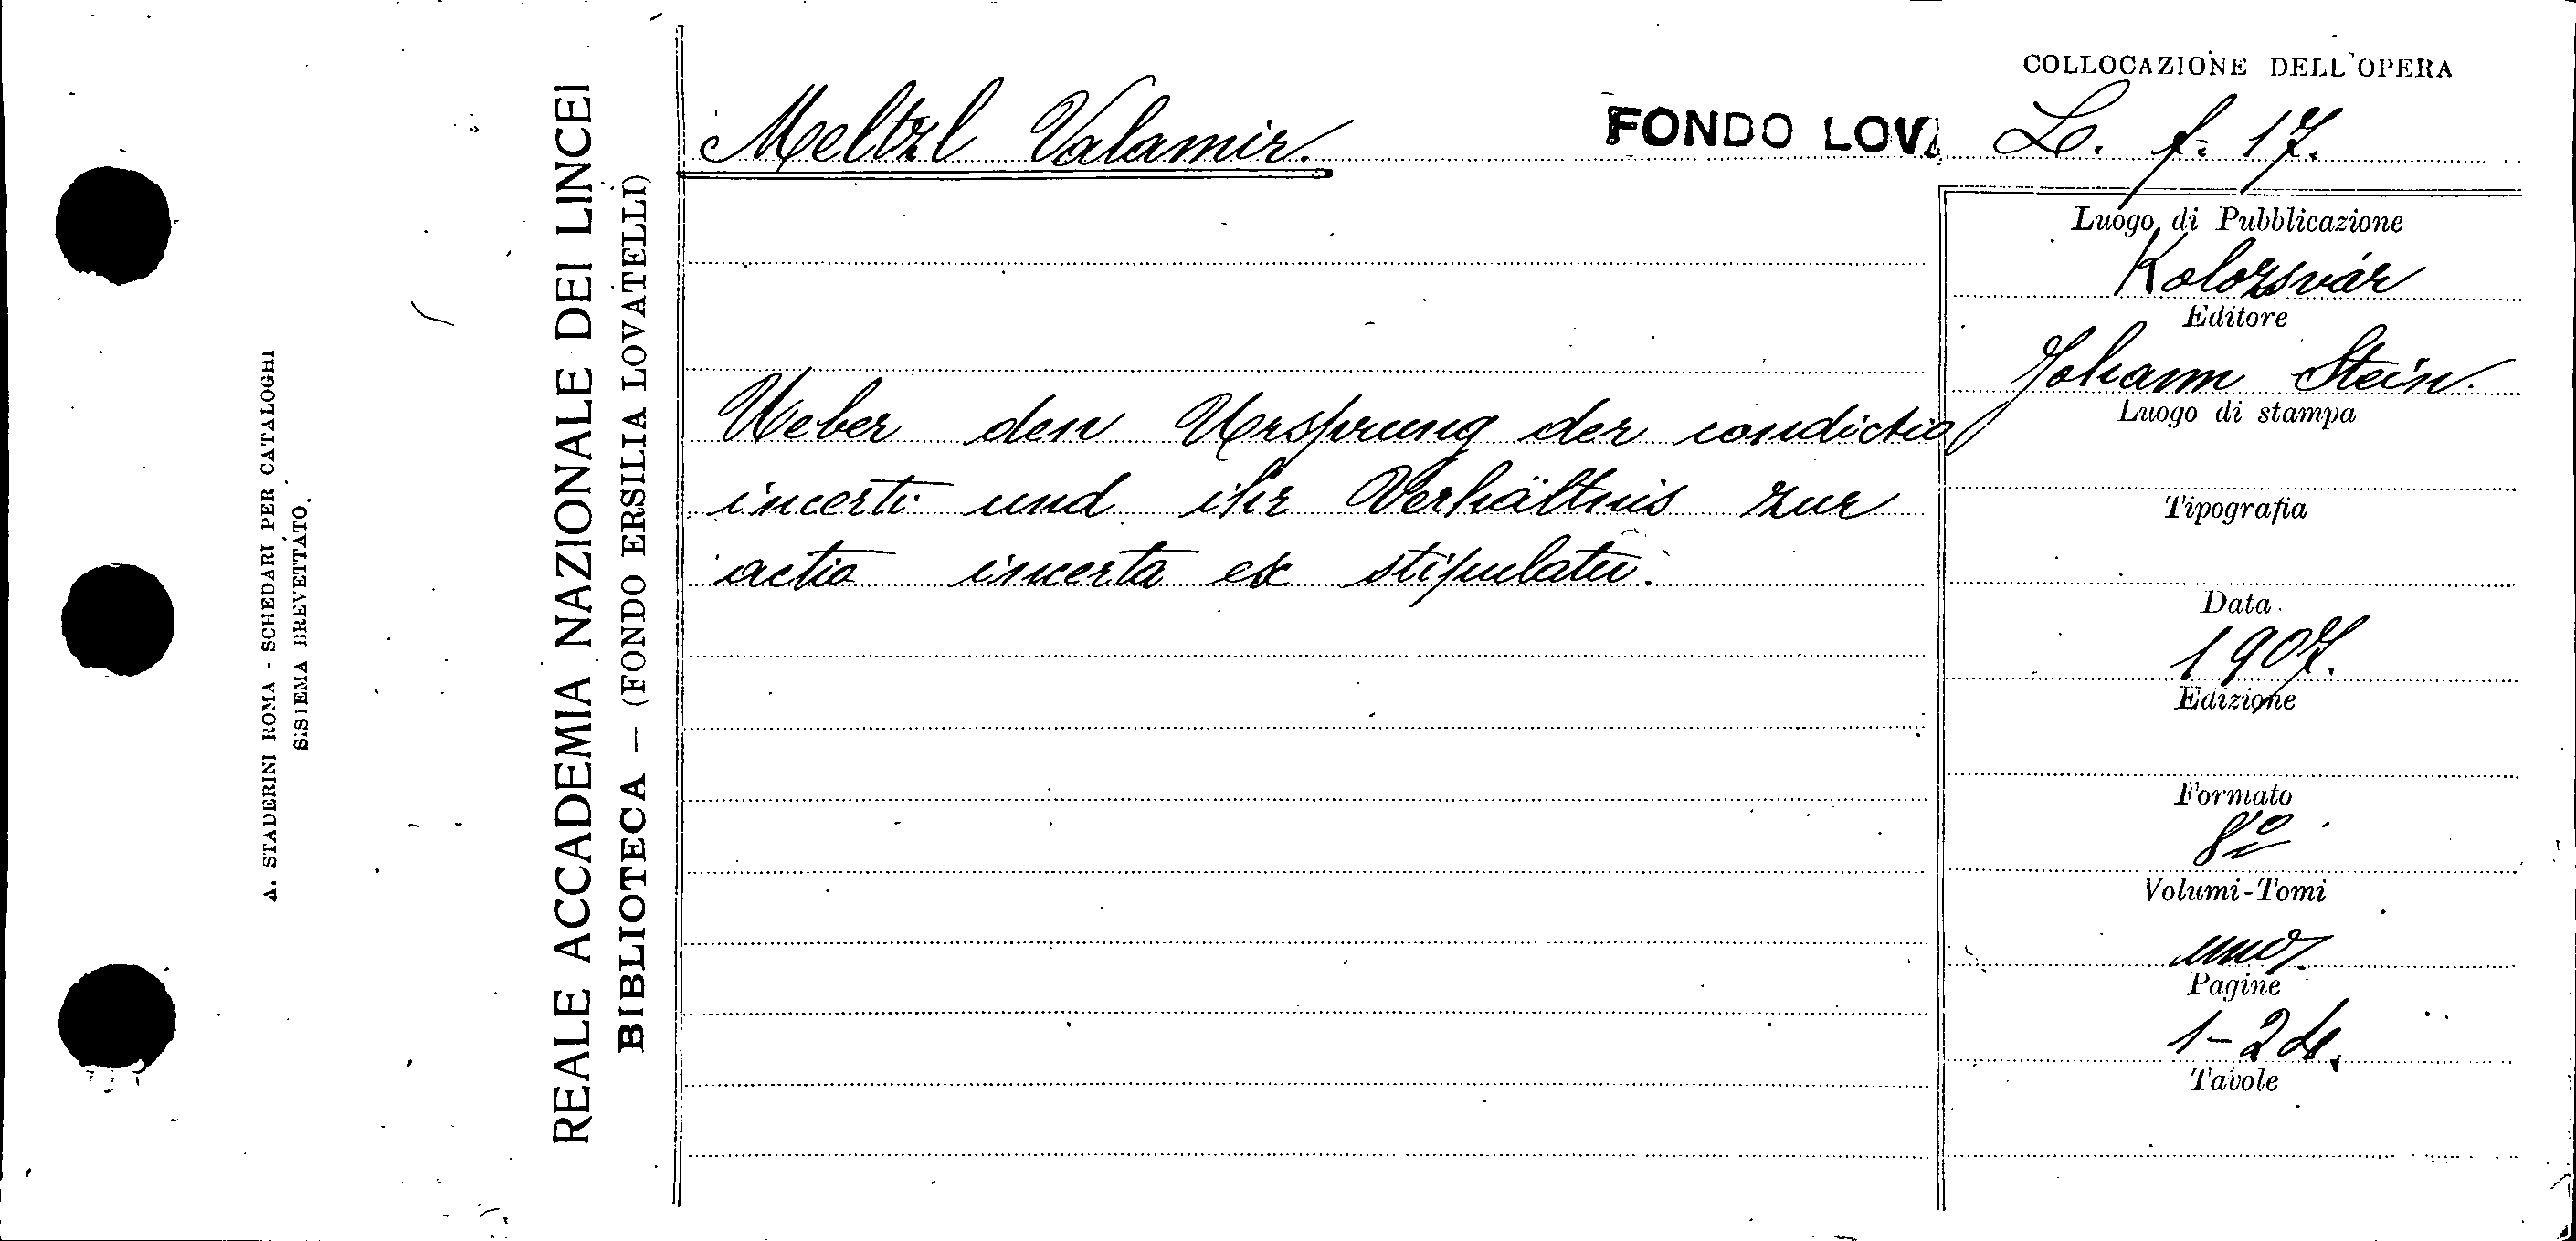 A. STADERINI ROMA - SCHEDARI PER CATALOGHI
SISTEMA BREVETTATO.
REALE ACCADEMIA NAZIONALE DEI LINCEI
BIBLIOTECA — (FONDO ERSILIA LOVATELLI)
Meltzl Valamir.
FONDO LOVA
COLLOCAZIONE DELL'OPERA
L. f. 17.
Ueber den Ursprung der condictio
incerti und ihr Verhältnis zur
actio incerta ex stipulatu.
Luogo di Pubblicazione
Kolozsvár
Editore
Johann Stein.
Luogo di stampa
Tipografia
Data
1907.
Edizione
Formato
8º
Volumi-Tomi
uno
Pagine
1-24.
Tavole